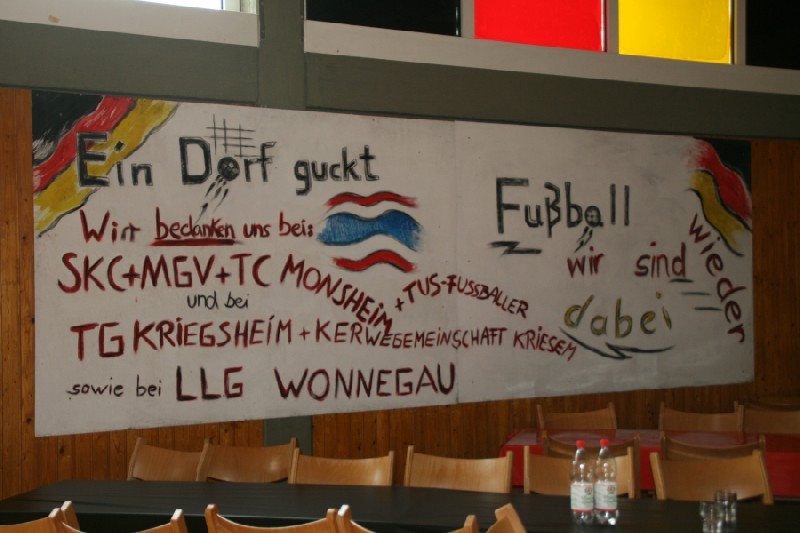 Ein Dorf guckt Fußball
Wir bedanken uns bei:
wir sind wieder
SKC+MGV+TC MONSHEIM + TUS-FUSSBALLER
dabei
und bei
TG KRIEGSHEIM + KERWEGEMEINSCHAFT KRIESEM
sowie bei LLG WONNEGAU